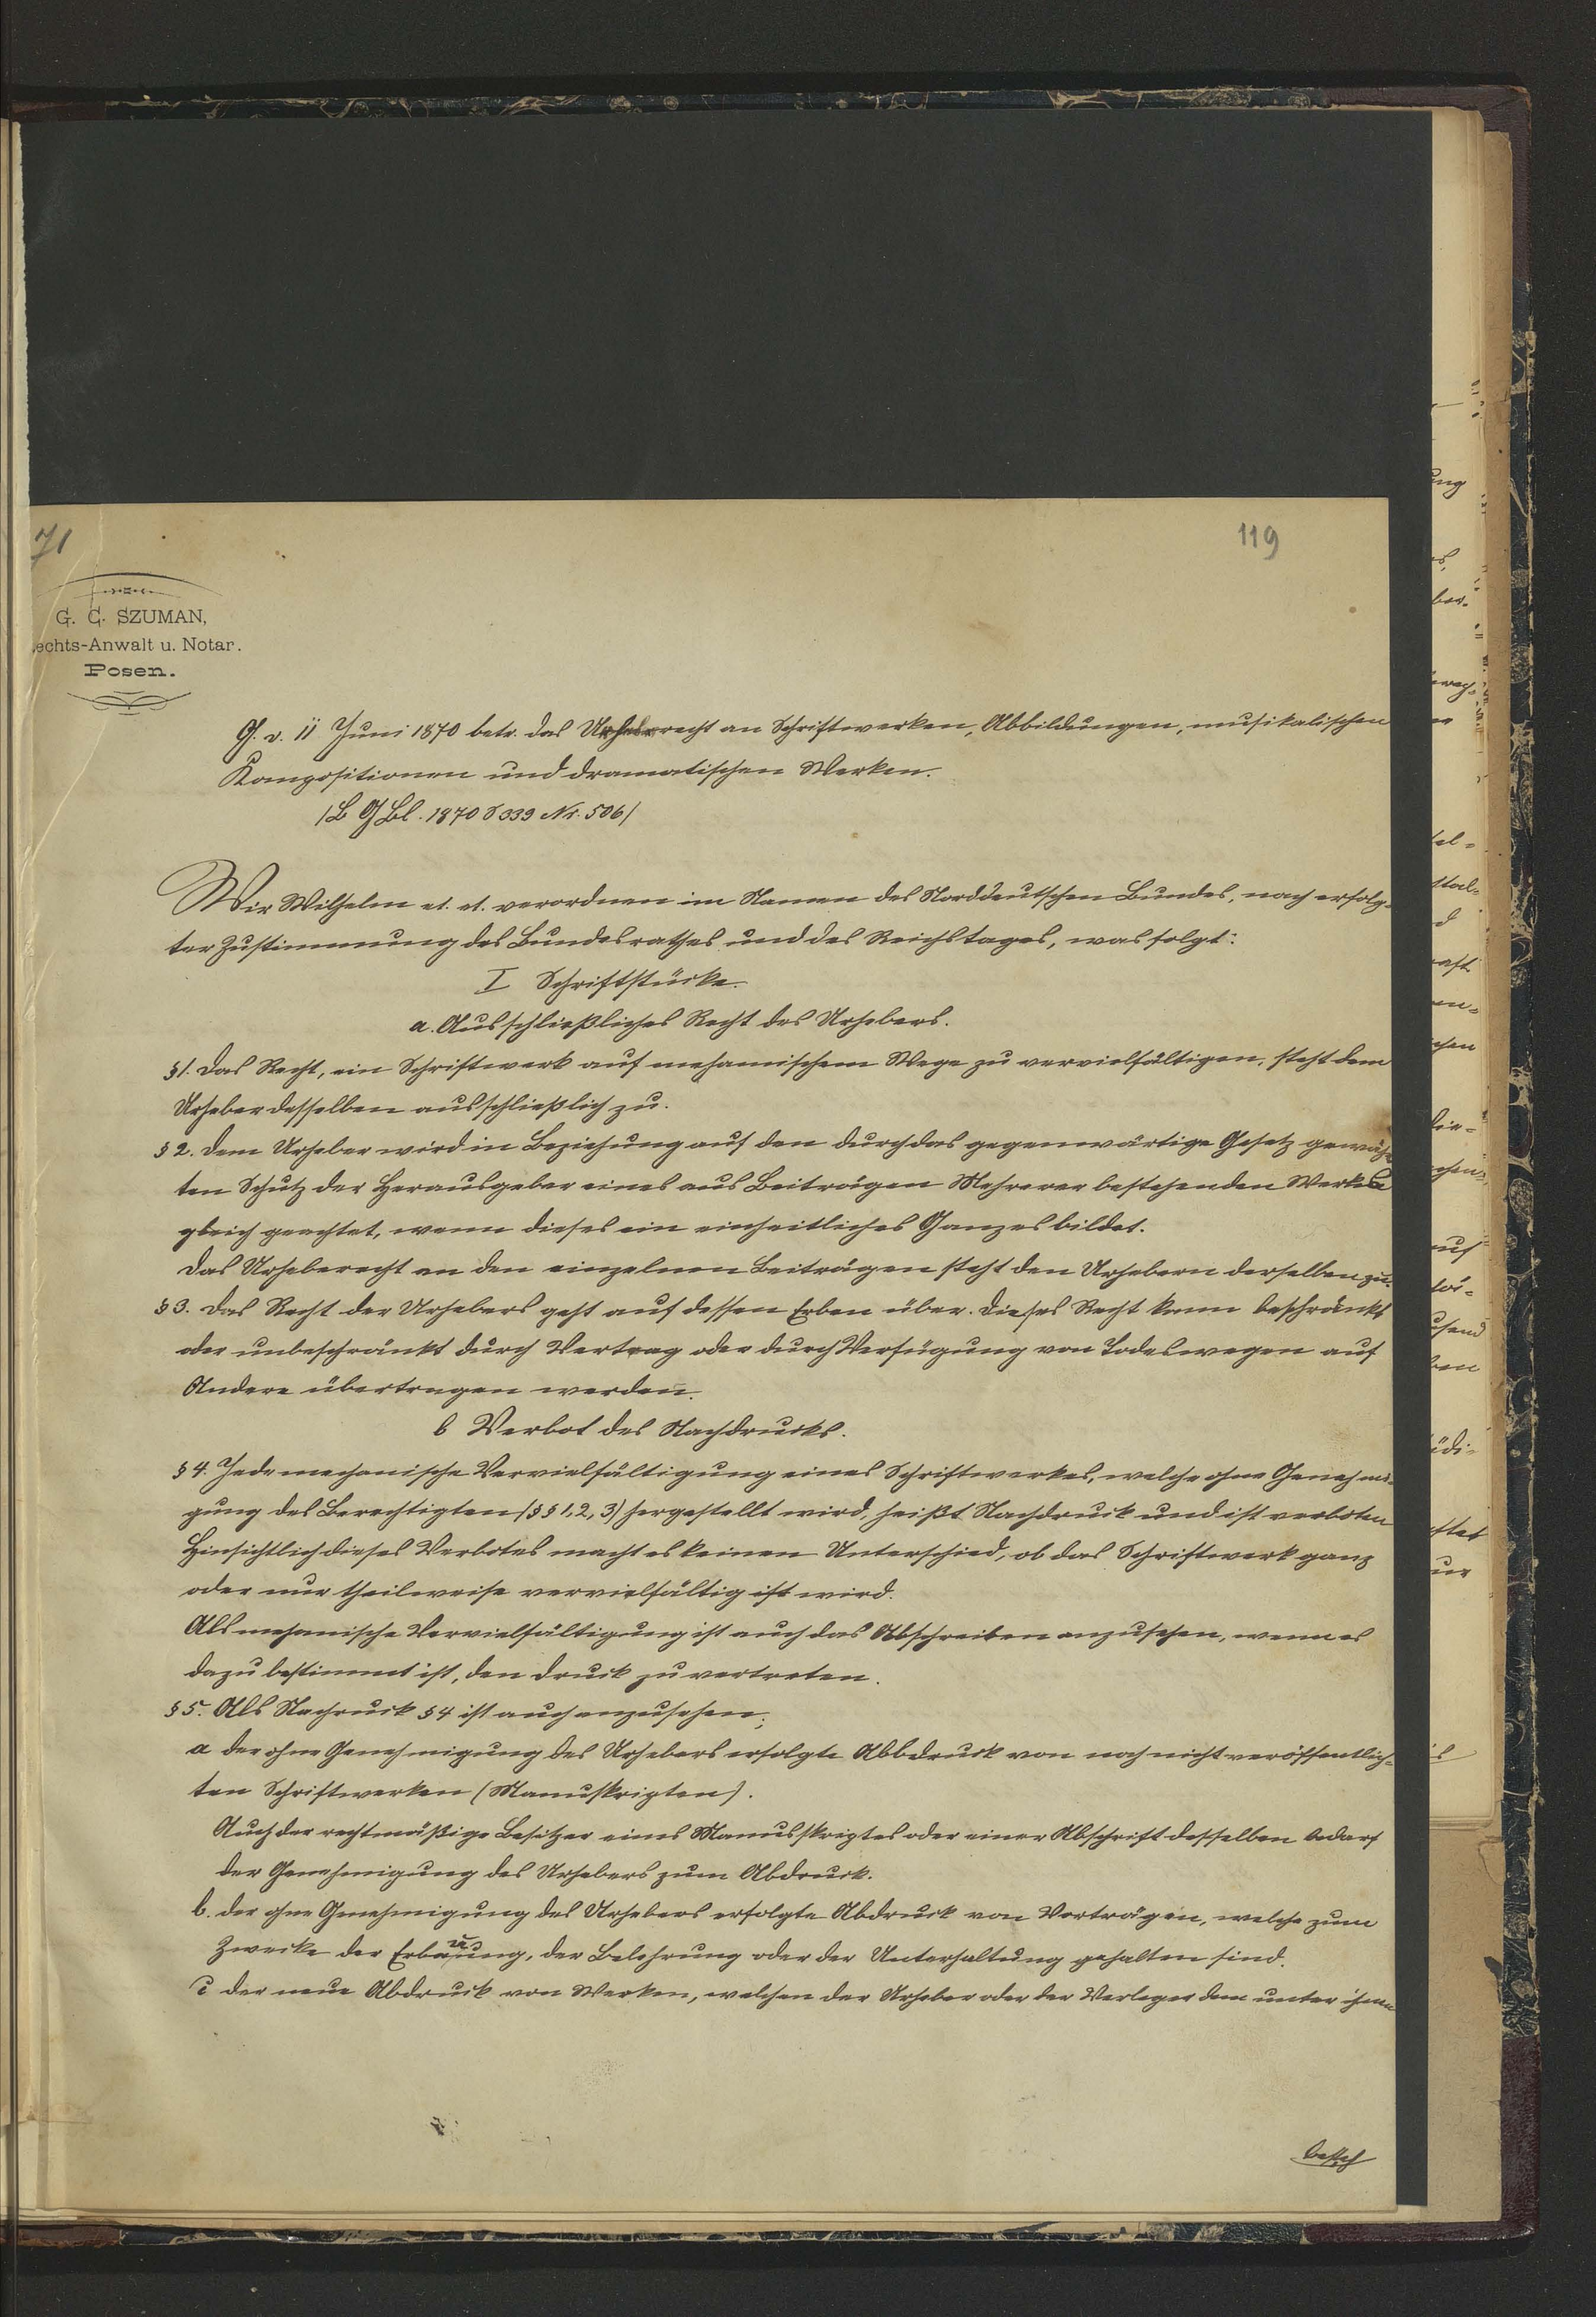 71
119
G. C. SZUMAN,
echts-Anwalt u. Notar.
Posen.
G. v. 11 Juni 1870 betr. das Urheberrecht an Schriftwerken, Abbildungen, musikalischen
Kompositionen und dramatischen Werken.
/B G Bl. 1870 S 339 Nr. 506/
Wir Wilhelm et. et. verordnen im Namen des Norddeutschen Bundes, nach erfolg-
ter Zustimmung des Bundesrathes und des Reichstages, was folgt:
I Schriftstücke.
a. Ausschließliches Recht des Urhebers.
§1. Das Recht, ein Schriftwerk auf mehanischem Wege zu vervielfältigen, steht dem
Urheber desselben ausschließlich zu.
§ 2. Dem Urheber wird in Beziehung auf den durch das gegenwärtige Gesetz gewäh
ten Schutz der Herausgeber eines aus Beiträgen Mehrerer bestehenden Werkes
gleich geachtet, wenn dieses ein einheitliches Ganzes bildet.
Das Urheberecht an den einzelnen Beiträgen steht den Urhebern derselben zu.
§ 3. Das Recht der Urhebers geht auf dessen Erben über. Dieses Recht kann beschränkt
oder unbeschränkt durch Vertrag oder durch Verfügung von Todeswegen auf
Andere übertragen werden.
b Verbot des Nachdrucks.
§ 4. Jede mechanische Vervielfältigung eines Schriftwerkes, welche ohne Genehmi-
gung des Berechtigten /§§ 1, 2, 3/ hergestellt wird, heißt Nachdruck und ist verboten
Hinsichtlich dieses Verbotes macht es keinen Unterschied, ob das Schriftwerk ganz
oder nur theilweise vervielfältig ist wird.
Als mehanische Vervielfältigung ist auch das Abschreiben anzusehen, wenn es
dazu bestimmt ist, den Druck zu vertreten.
§ 5. Als Nachruck § 4 ist auch anzusehen;
a der ohne Genehmigung des Urhebers erfolgte Abbdruck von noch nicht veröffentlich-
ten Schriftwerken (Manuskripten).
Auch der rechtmäßige Besitzer eines Manusskriptes oder einer Abschrift desselben bedarf
der Genehmigung des Urhebers zum Abdruck.
b. der ohne Genehmigung des Urhebers erfolgte Abdruck von Vorträgen, welche zum
Zwecke der Erbauung, der Belehrung oder der Unterhaltung gehalten sind.
c der neue Abdruck von Werken, welchen der Urheber oder der Verleger dem unter ihnen
besteh